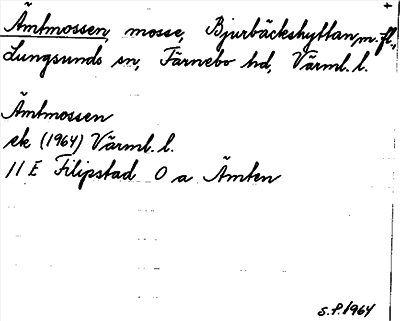 Ämtmossen, mosse, Bjurbäckshyttan, m.fl.,
Lungsunds sn, Färnebo hd, Värml. l.
Ämtmossen
ek (1964) Värml. l.
11 E Filipstad O a Ämten
S.P. 1964